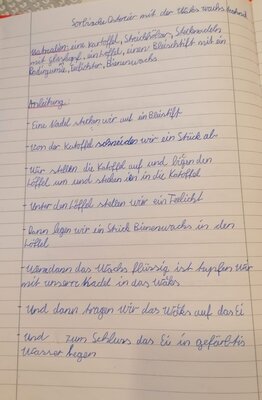 Sorbische Ostereier mit der Wachs technik
Materialien: eine Kartoffel, Streichhölzer, Stecknadeln
mit Glaskopf, ein Löffel, einen Bleischtift mit ein
Radiergumie, Teelichter, Bienenwachs.
Anleitung
- Eine Nadel stecken wir auf ein Bleistift
- Von der Katoffel schneiden wir ein Stück ab-
- Wir stellen die Katoffel auf und bigen den
Löffel um und stecken ihn in die Katoffel
- Unter den Löffel stellen wir ein Teelicht
- Dann legen wir ein Stück Bienenwachs in den
Löffel
- Wenn dann das Wachs flüssig ist tupfen Wir
mit unsere Nadel in das Waks.
- Und dann tragen Wir das Waks auf das Ei
- Und zum Schluss das Ei in gefärbtis
Wasser legen